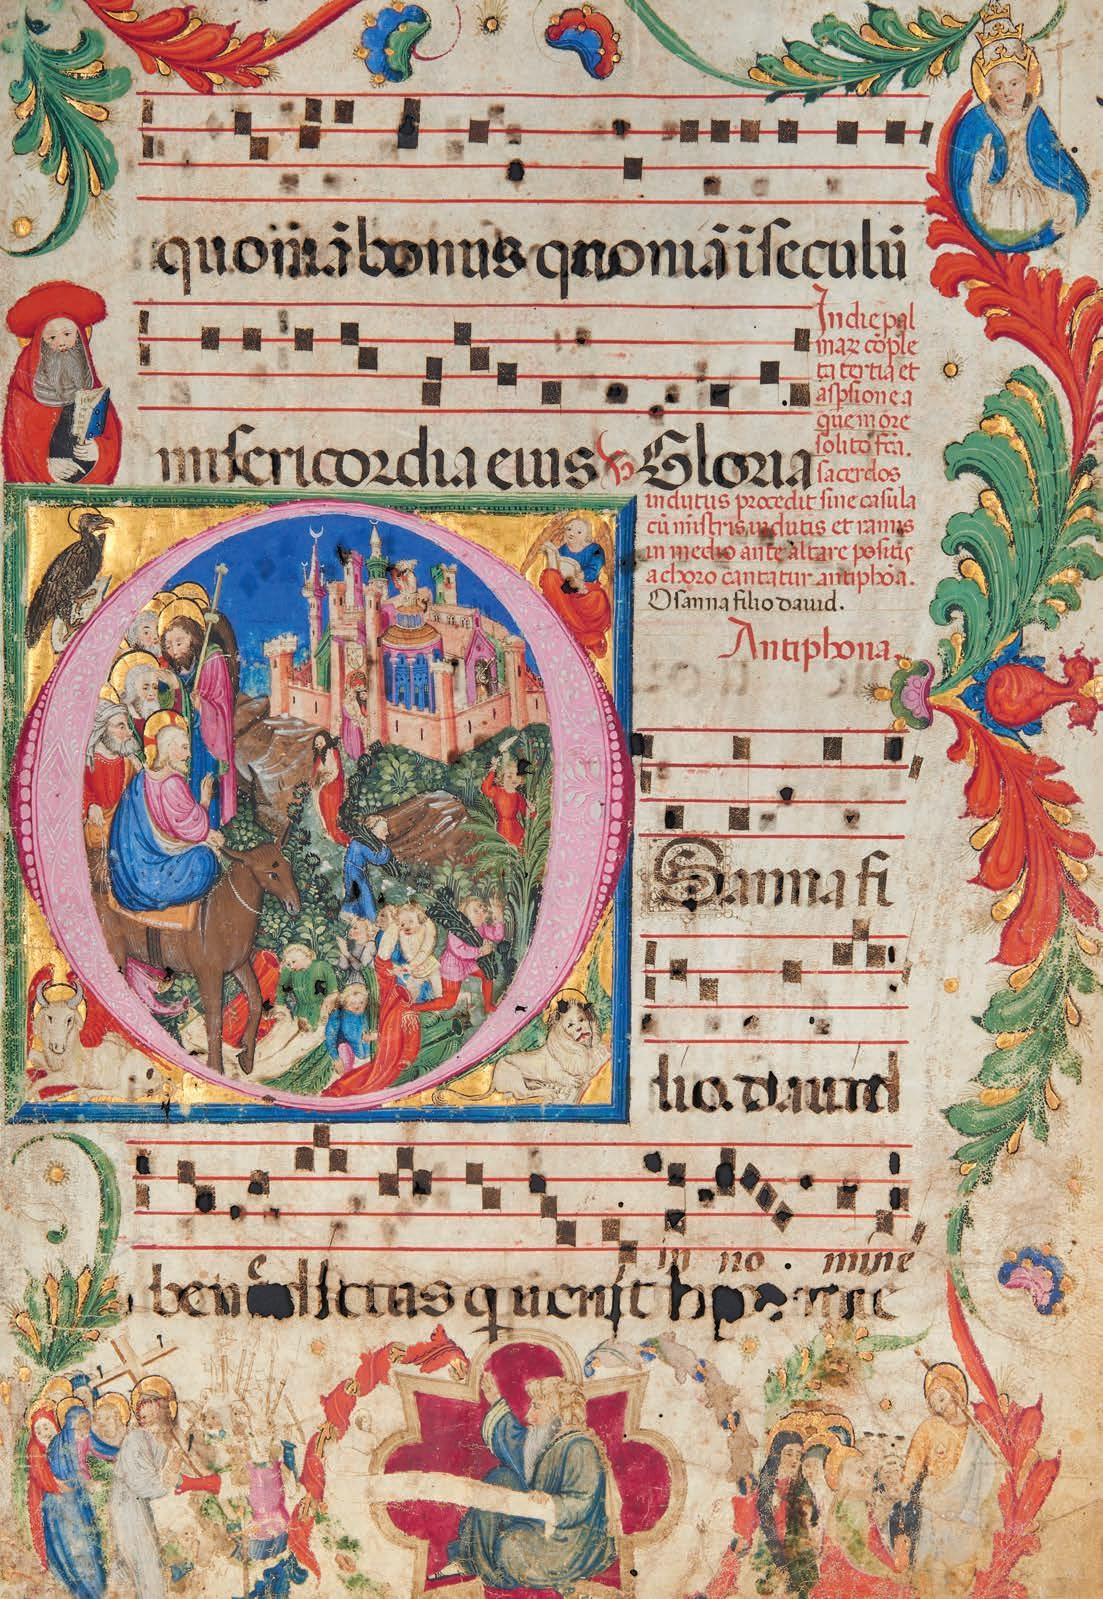 quoniã bonus quoniã ĩ seculũ
In die pal
maꝝ cõple
ta tertia et
aspsione a
que more
solito fca.
misericordia eius ℣ Gloria sacerdos
indutus procedit sine casula
cũ mĩstris indutis et ramis
in medio ante altare positis
a choro cantatur antiphõa.
Osanna filio david.
Antiphona.
Sanna fi
lio david
in no mine
benedictus qui